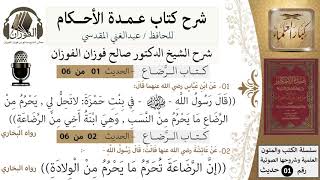 شرح كتاب عمدة الأحكام
للحافظ / عبدالغني المقدسي
شرح الشيخ الدكتور صالح فوزان الفوزان
كتاب الرضاع - الحديث 01 من 06
01. عن ابن عباس رضي الله عنهما قال:
قال رسول الله ﷺ - في بنت حمزة: ((لا تحل لي، يحرم من الرضاع ما يحرم من النسب، وهي ابنة أخي من الرضاعة))
رواه البخاري
كتاب الرضاع - الحديث 02 من 06
02. عن عائشة رضي الله عنها قالت: قال رسول الله
((إن الرضاعة تحرم ما يحرم من الولادة))
رواه البخاري
الفوزان
سلسلة الكتب والمتون
العلمية وشروحها الصوتية
رقم 01 حديث